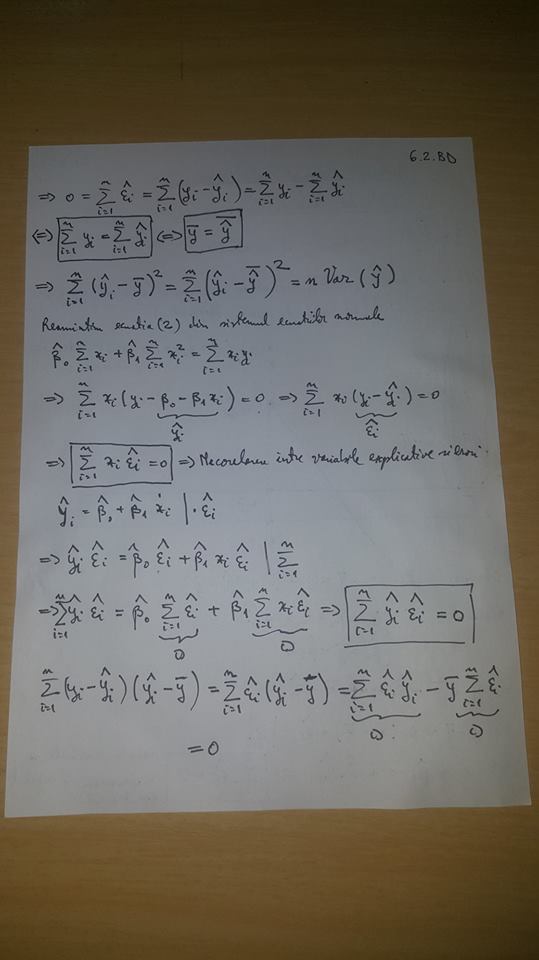 6.2.BD
⇒ 0 = Σ_{i=1}^{n} ε̂_i = Σ_{i=1}^{n} (y_i - ŷ_i) = Σ_{i=1}^{n} y_i - Σ_{i=1}^{n} ŷ_i
⇔ Σ_{i=1}^{n} y_i = Σ_{i=1}^{n} ŷ_i ⇔ \bar{y} = \bar{ŷ}
⇒ Σ_{i=1}^{n} (ŷ_i - \bar{y})² = Σ_{i=1}^{n} (ŷ_i - \bar{ŷ})² = n Var(ŷ)
Reamintim ecuatia (2) din sistemul ecuatiilor normale
β̂_0 Σ_{i=1}^{n} x_i + β̂_1 Σ_{i=1}^{n} x_i² = Σ_{i=1}^{n} x_i y_i
⇒ Σ_{i=1}^{n} x_i (y_i - β_0 - β_1 x_i) = 0 ⇒ Σ_{i=1}^{n} x_i (y_i - ŷ_i) = 0
ŷ_i ε̂_i
⇒ Σ_{i=1}^{n} x_i ε̂_i = 0 ⇒ Necorelarea intre variabile explicative si erori.
ŷ_i = β̂_0 + β̂_1 x_i | · ε̂_i
⇒ ŷ_i ε̂_i = β̂_0 ε̂_i + β̂_1 x_i ε̂_i | Σ_{i=1}^{n}
⇒ Σ_{i=1}^{n} ŷ_i ε̂_i = β̂_0 Σ_{i=1}^{n} ε̂_i + β̂_1 Σ_{i=1}^{n} x_i ε̂_i ⇒ Σ_{i=1}^{n} ŷ_i ε̂_i = 0
0 0
Σ_{i=1}^{n} (y_i - ŷ_i)(ŷ_i - \bar{y}) = Σ_{i=1}^{n} ε̂_i (ŷ_i - \bar{y}) = Σ_{i=1}^{n} ε̂_i ŷ_i - \bar{y} Σ_{i=1}^{n} ε̂_i
0 0
= 0